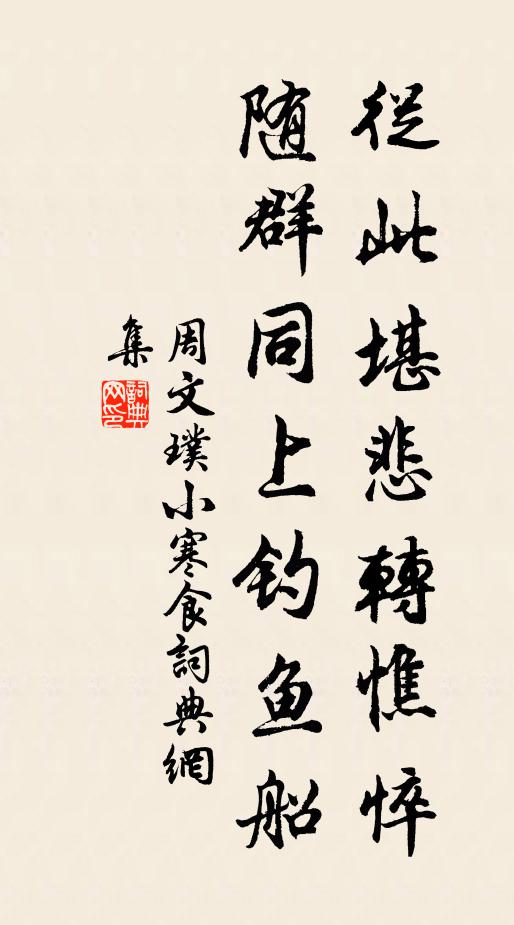 從此堪悲轉憔悴
随群同上钓鱼船
周文璞小寒食詞典網
集
詞典網印